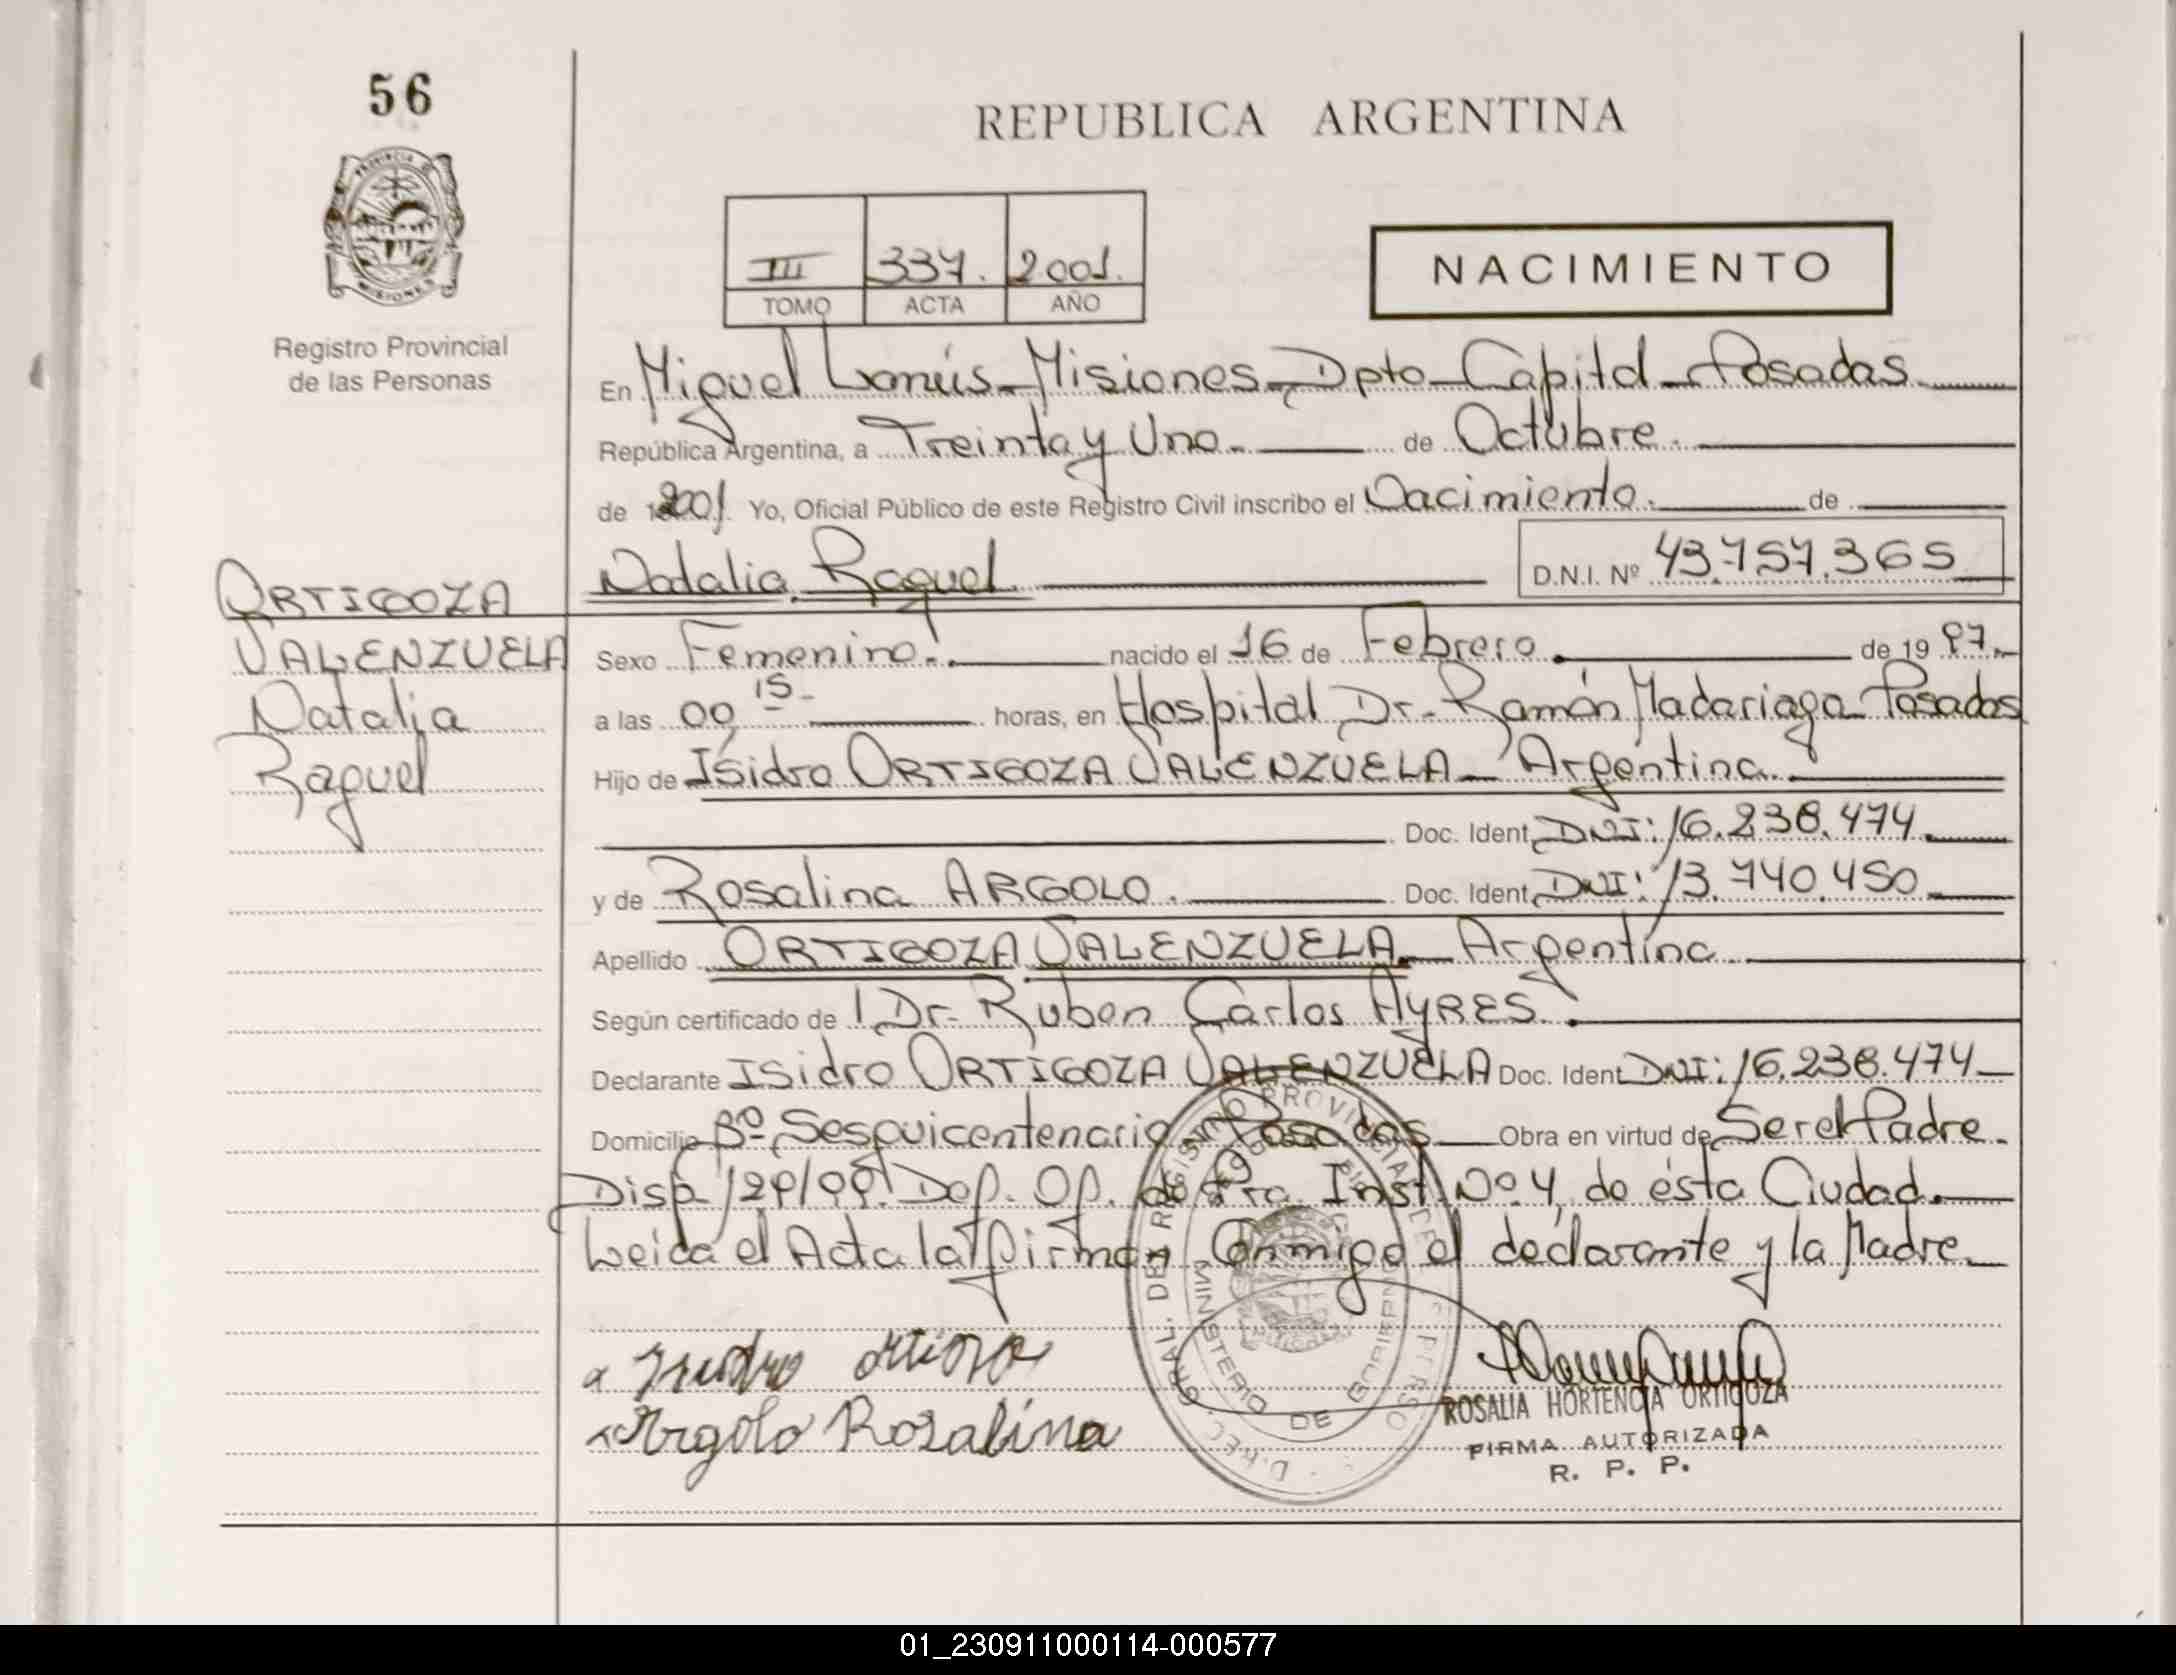 56
REPUBLICA ARGENTINA
III 337. 2001.
TOMO ACTA AÑO
NACIMIENTO
PROVINCIA D
MISIONES
Registro Provincial
de las Personas
En Miguel Lanús - Misiones - Dpto - Capital - Posadas.
República Argentina, a Treinta y Uno. de Octubre.
de 2001 Yo, Oficial Público de este Registro Civil inscribo el Nacimiento. de
Natalia Raquel D.N.I. Nº 43.757.365
ORTIGOZA
VALENZUELA
Natalia
Raquel
Sexo Femenino. nacido el 16 de Febrero. de 19 97
a las 00,15 horas, en Hospital Dr. Ramón Madariaga - Posadas
Hijo de Isidro ORTIGOZA VALENZUELA - Argentina.
Doc. Ident. DNI: 16.238.474.
y de Rosalina ARGOLO. Doc. Ident. DNI: 13.740.450
Apellido ORTIGOZA VALENZUELA. Argentina.
Según certificado de Dr. Ruben Carlos AYRES.
Declarante Isidro ORTIGOZA VALENZUELA Doc. Ident DNI: 16.238.474
Domicilio Bº Sesquicentenario - Posadas Obra en virtud de Ser el Padre.
Disp. 129/99. Def. Of. de 1ra. Inst. Nº 4, de ésta Ciudad.
Leida el Acta la firman Conmigo el declarante y la Madre
Isidro
Argolo Rosalina
D.REC. GRAL. DEL REGISTRO PROVINCIAL DE PERSO
MINISTERIO DE GOBIERNO
ROSALIA HORTENCIA ORTIGOZA
FIRMA AUTORIZADA
R. P. P.
01_230911000114-000577